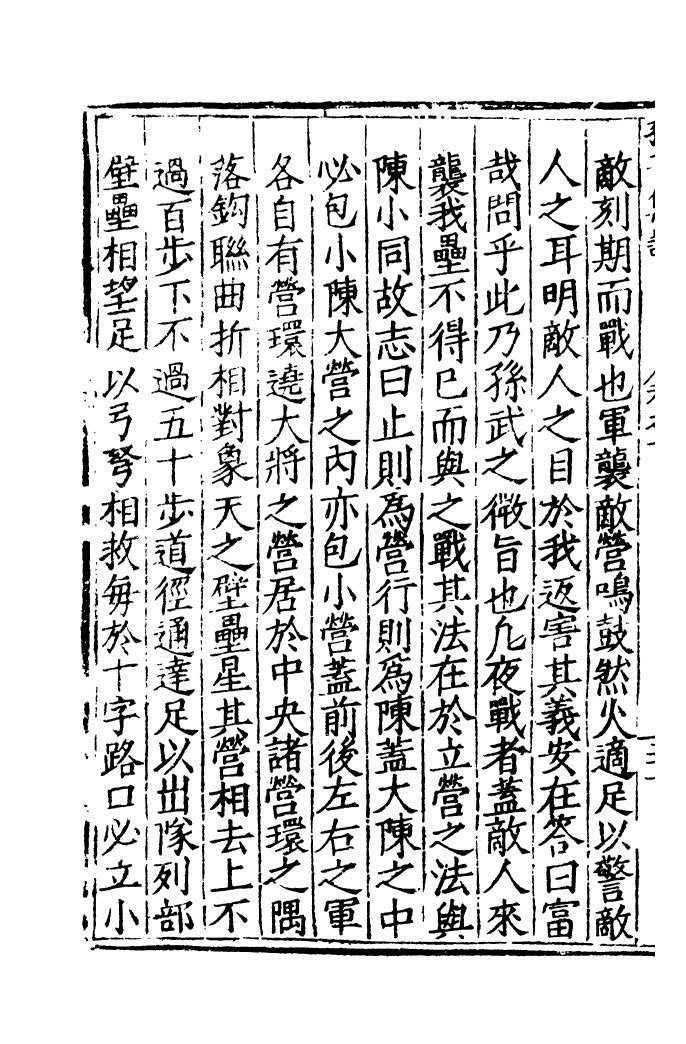 敵刻期而戰也軍襲敵營鳴鼓然火適足以警敵
人之耳明敵人之目於我返害其義安在答曰富
哉問乎此乃孫武之微旨也凢夜戰者蓋敵人來
襲我壘不得已而與之戰其法在於立營之法與
陳小同故志曰止則爲營行則爲陳蓋大陳之中
必包小陳大營之內亦包小營蓋前後左右之軍
各自有營環遶大將之營居於中央諸營環之隅
落鈎聯曲折相對象天之壁壘星其營相去上不
過百步下不過五十步道徑通達足以出隊列部
壁壘相望足以弓弩相救每於十字路口必立小